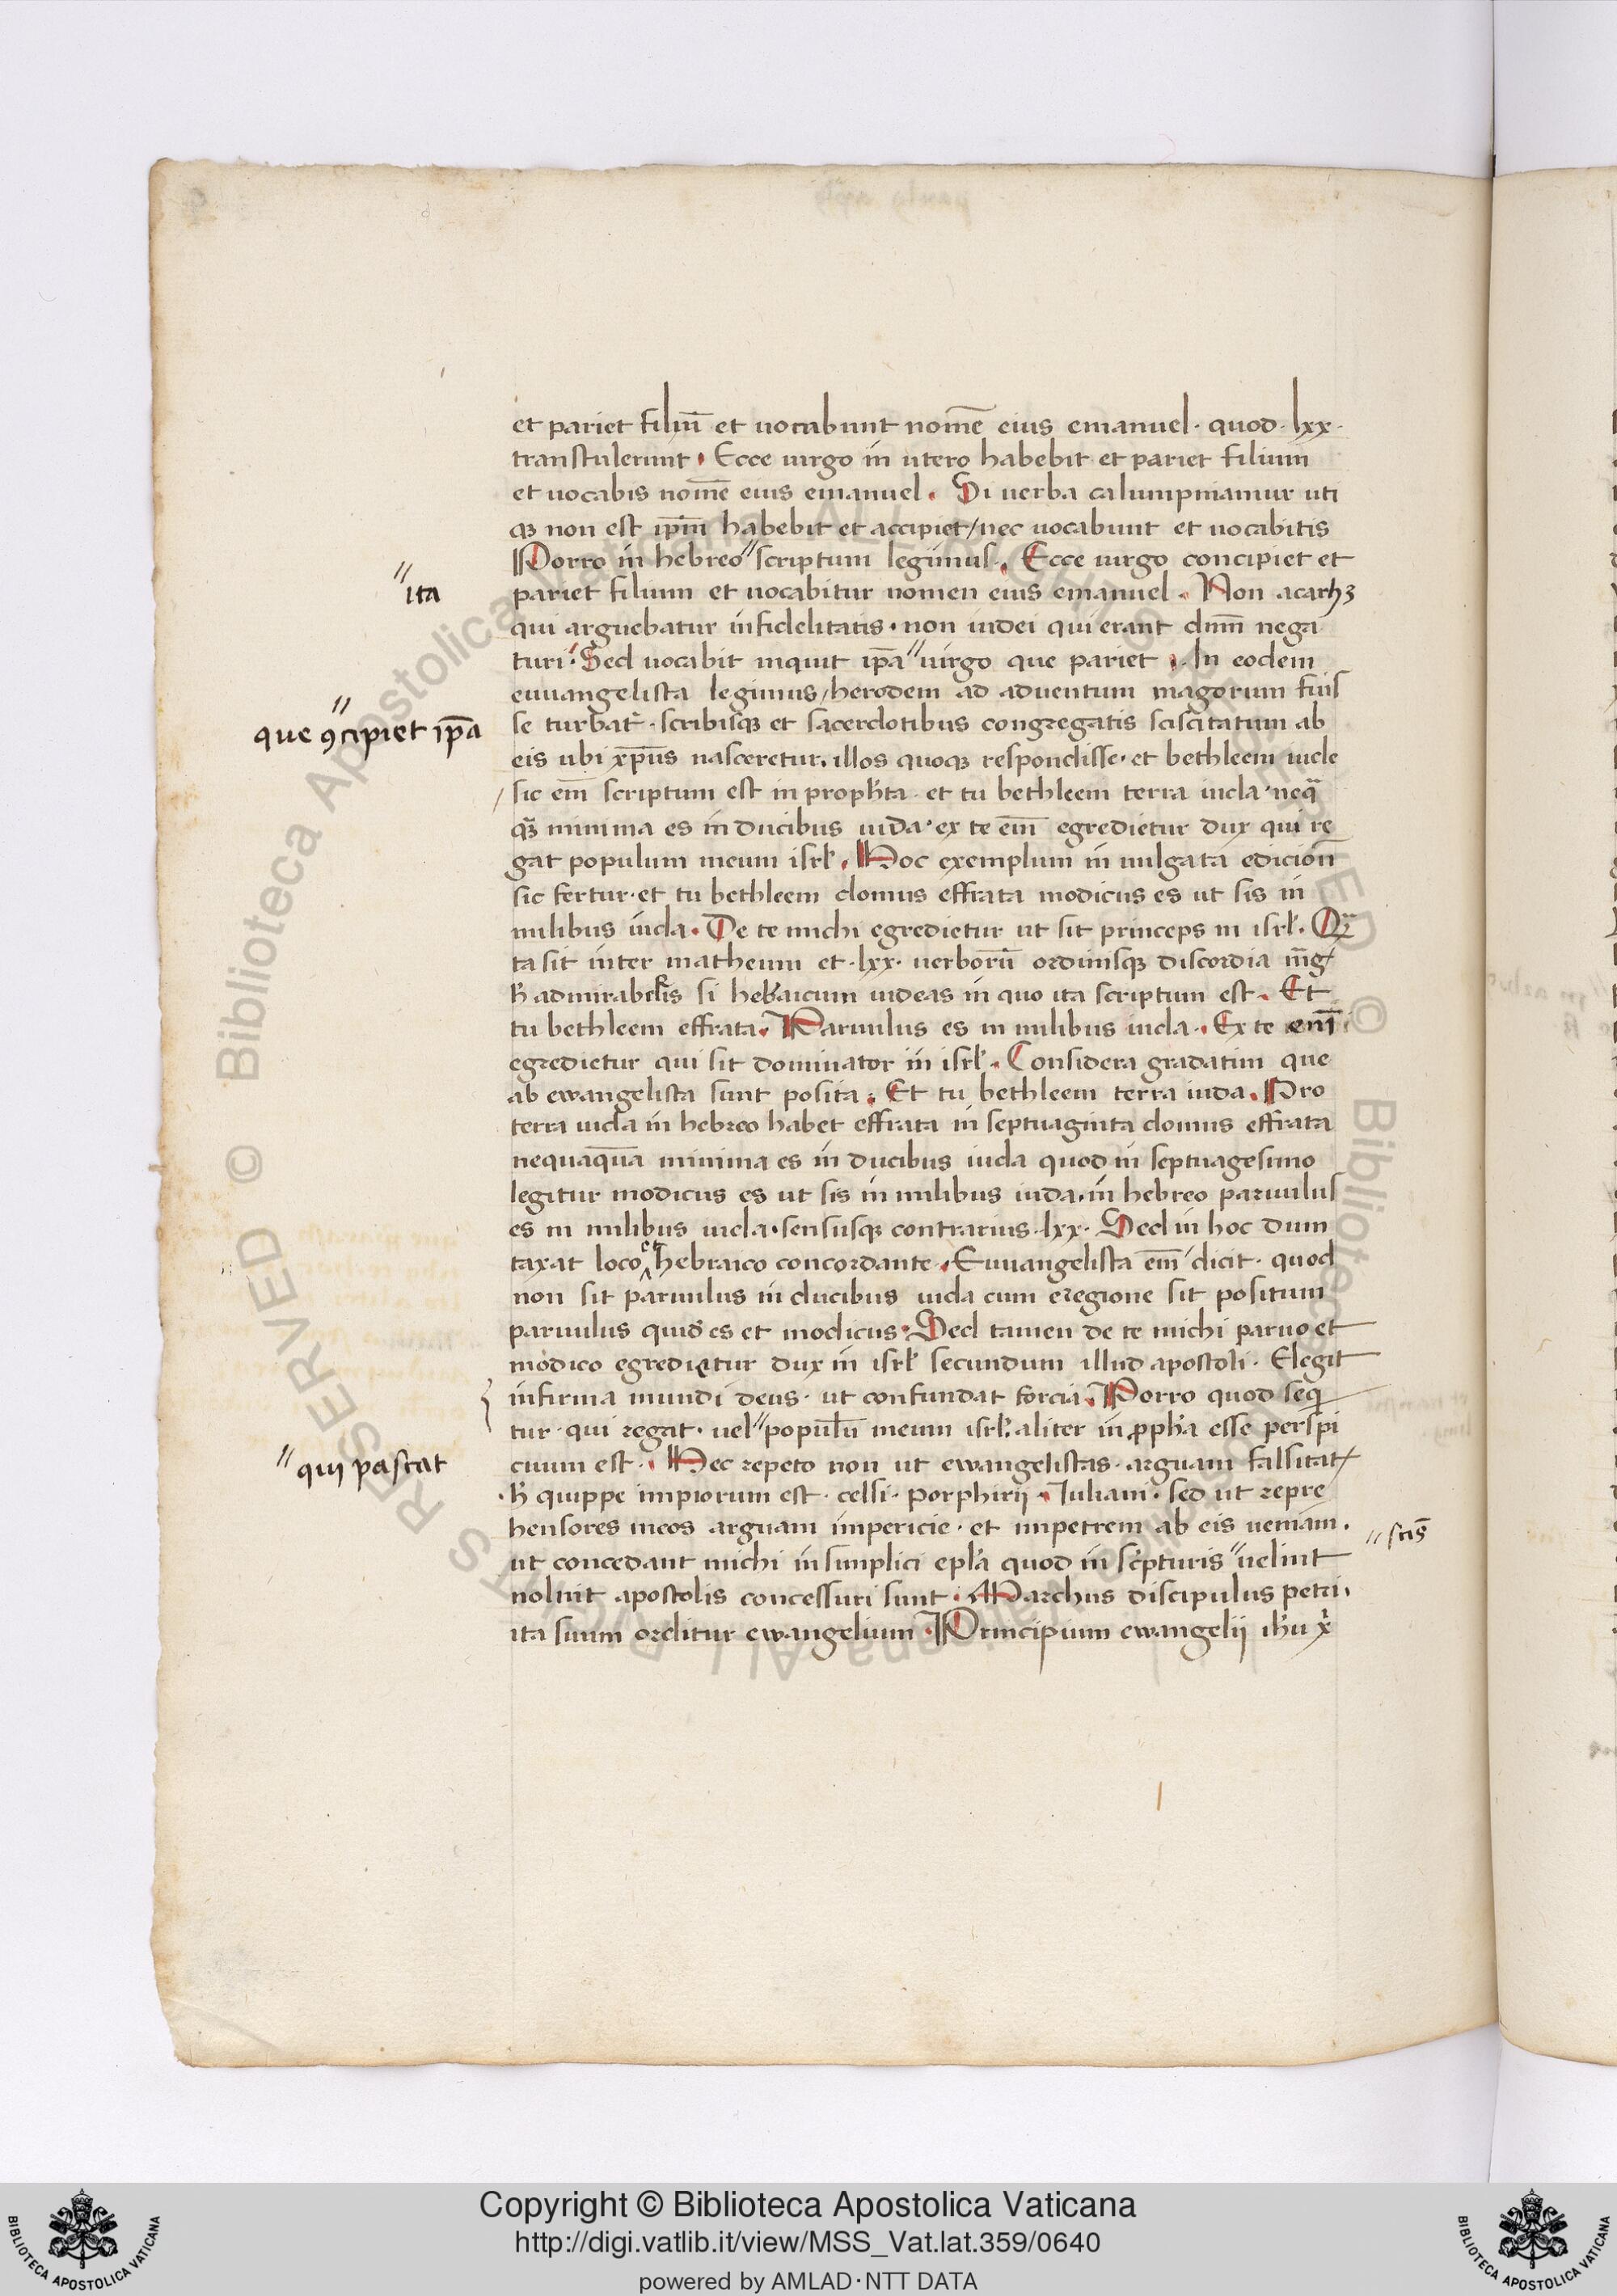 et pariet filiū et uocabunt nomē eius emanuel · quod · lxx ·
transtulerunt · Ecce uirgo in utero habebit et pariet filium
et uocabis nomē eius emanuel · Si uerba calumpniamur uti
qꝫ non est ip̄m habebit et accipiet / nec uocabunt et uocabitis
Porro in hebreo " scriptum legimus · Ecce uirgo concipiet et
" ita
pariet filium et uocabitur nomen eius emanuel · Non acathꝫ
qui arguebatur infidelitatis · non iudei qui erant dnm̄ nega
turi · Sed uocabit inquit ip̄a " uirgo que pariet · In eodem
euuangelista legimus / herodem ad aduentum magorum fuis
" que ꝯcipiet ip̄a
se turbat̄ · scribisqꝫ et sacerdotibus congregatis sciscitatum ab
eis ubi xp̄us nasceretur · illos quoqꝫ respondisse · et bethleem iude
sic em̄ scriptum est in proph̄ta · et tu bethleem terra iuda · neq̄
qꝫ minima es in ducibus iuda · ex te em̄ egredietur dux qui re
gat populum meum isrł · Hoc exemplum in uulgata edicion̄
sic fertur · et tu bethleem domus effrata modicus es ut sis in
milibus iuda · De te michi egredietur ut sit princeps in isrł ·
ta sit inter matheum et · lxx · uerborū ordinisqꝫ discordia
si hebraicum uideas in quo ita scriptum est · Et
tu bethleem effrata · Paruulus es in milibus iuda · Ex te enī
egredietur qui sit dominator in isrł · Considera gradatim que
ab ewangelista sunt posita · Et tu bethleem terra iuda · Pro
terra iuda in hebreo habet effrata in septuaginta domus effrata
nequaquā minima es in ducibus iuda quod in septuagesimo
legitur modicus es ut sis in milibus iuda · in hebreo paruulus
es in milibus iuda · sensusqꝫ contrarius · lxx · Sed in hoc dum
taxat loco et hebraico concordante · Euuangelista em̄ dicit · quod
non sit paruulus in ducibus iuda cum eregione sit positum
paruulus quid̄ es et modicus · Sed tamen de te michi paruo et
modico egredietur dux in isrł secundum illud apostoli · Elegit
infirma mundi deus · ut confundat forcia · Porro quod seqi
tur · qui regat · uel " populū meum isrł · aliter in ꝓph̄a esse perspi
" qui pascat
cuum est · Hec repeto non ut ewangelistas · arguam falsitat
· h̄ quippe impiorum est · celsi · porphirii · Iuliani · sed ut repre
hensores meos arguam impericie · et impetrem ab eis ueniam ·
ut concedant michi in simplici epl̄a quod in sc̄pturis " uelint
" sc̄is
nolint apostolis concessuri sunt · Marchus discipulus petri ·
ita suum orditur ewangelium · Principium ewangelii ih̄u x̄
Copyright © Biblioteca Apostolica Vaticana
http://digi.vatlib.it/view/MSS_Vat.lat.359/0640
powered by AMLAD · NTT DATA
BIBLIOTECA APOSTOLICA VATICANA
BIBLIOTECA APOSTOLICA VATICANA